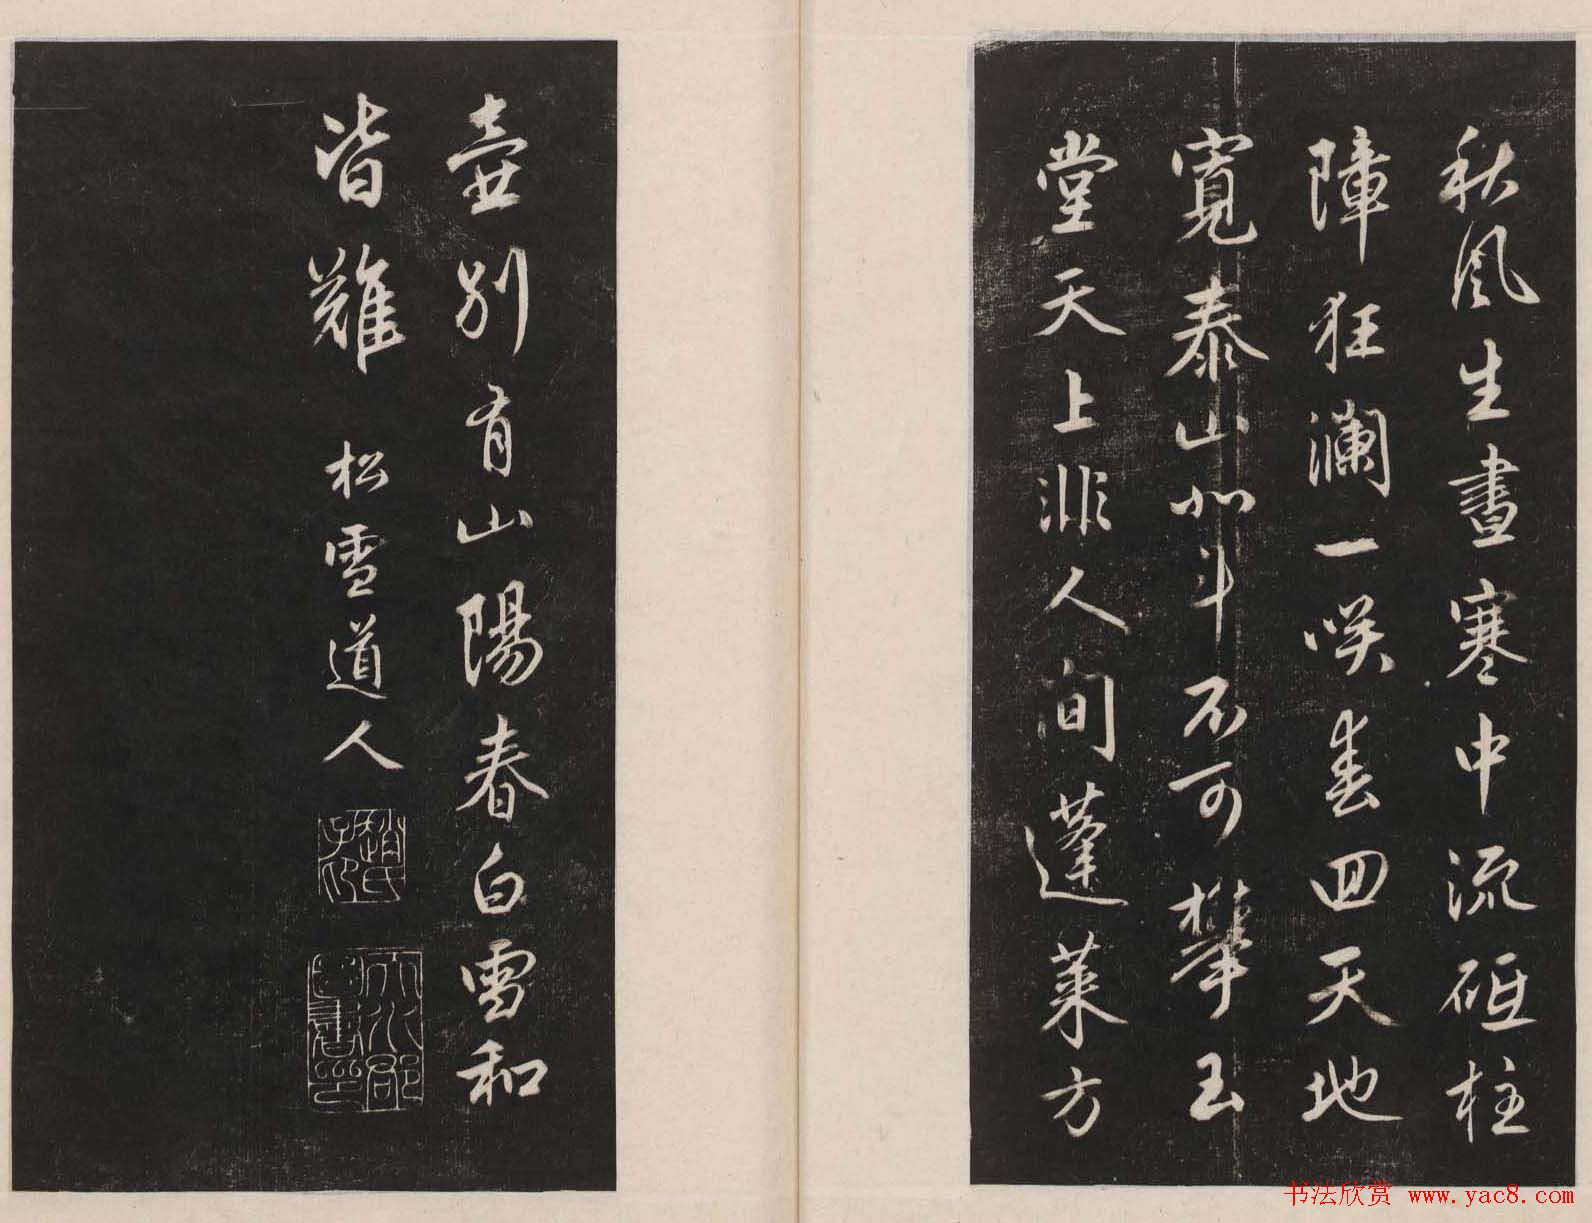 秋風生晝寒中流砥柱
障狂瀾一咲春回天地
寬泰山北斗不可攀玉
堂天上非人間蓬萊方
壺別有山陽春白雪和
皆難 松雪道人
趙氏子印
天水郡圖書印
书法欣赏 www.yac8.com